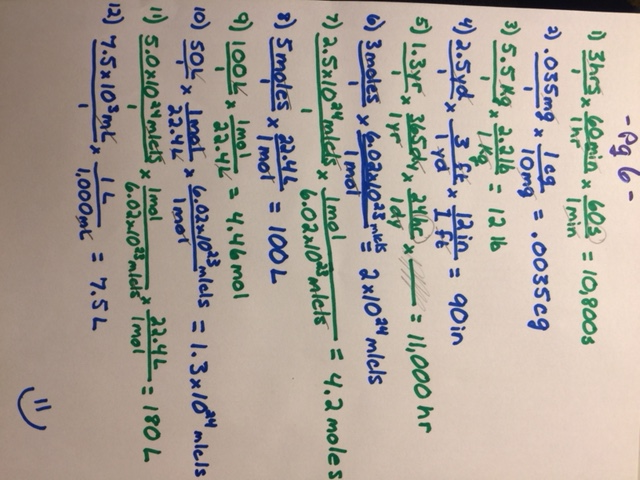 - Pg 6 -
1) 3hrs/1 × 60min/1hr × 60s/1min = 10,800s
2) .035mg/1 × 1cg/10mg = .0035cg
3) 5.5kg/1 × 2.2lb/1kg = 12 lb
4) 2.5yd/1 × 3 ft/1 yd × 12in/1 ft = 90in
5) 1.3yr/1 × 365dy/1yr × 24hr/1dy × = 11,000 hr
6) 3moles/1 × 6.02×10²³mlcls/1mol = 2×10²⁴ mlcls
7) 2.5×10²⁴mlcls/1 × 1mol/6.02×10²³mlcls = 4.2 moles
8) 5moles/1 × 22.4L/1mol = 100L
9) 100L/1 × 1mol/22.4L = 4.46mol
10) 50L/1 × 1mol/22.4L × 6.02×10²³mlcls/1mol = 1.3×10²⁴ mlcls
11) 5.0×10²⁴mlcls/1 × 1mol/6.02×10²³mlcls × 22.4L/1mol = 180L
12) 7.5×10³mL/1 × 1L/1,000mL = 7.5L